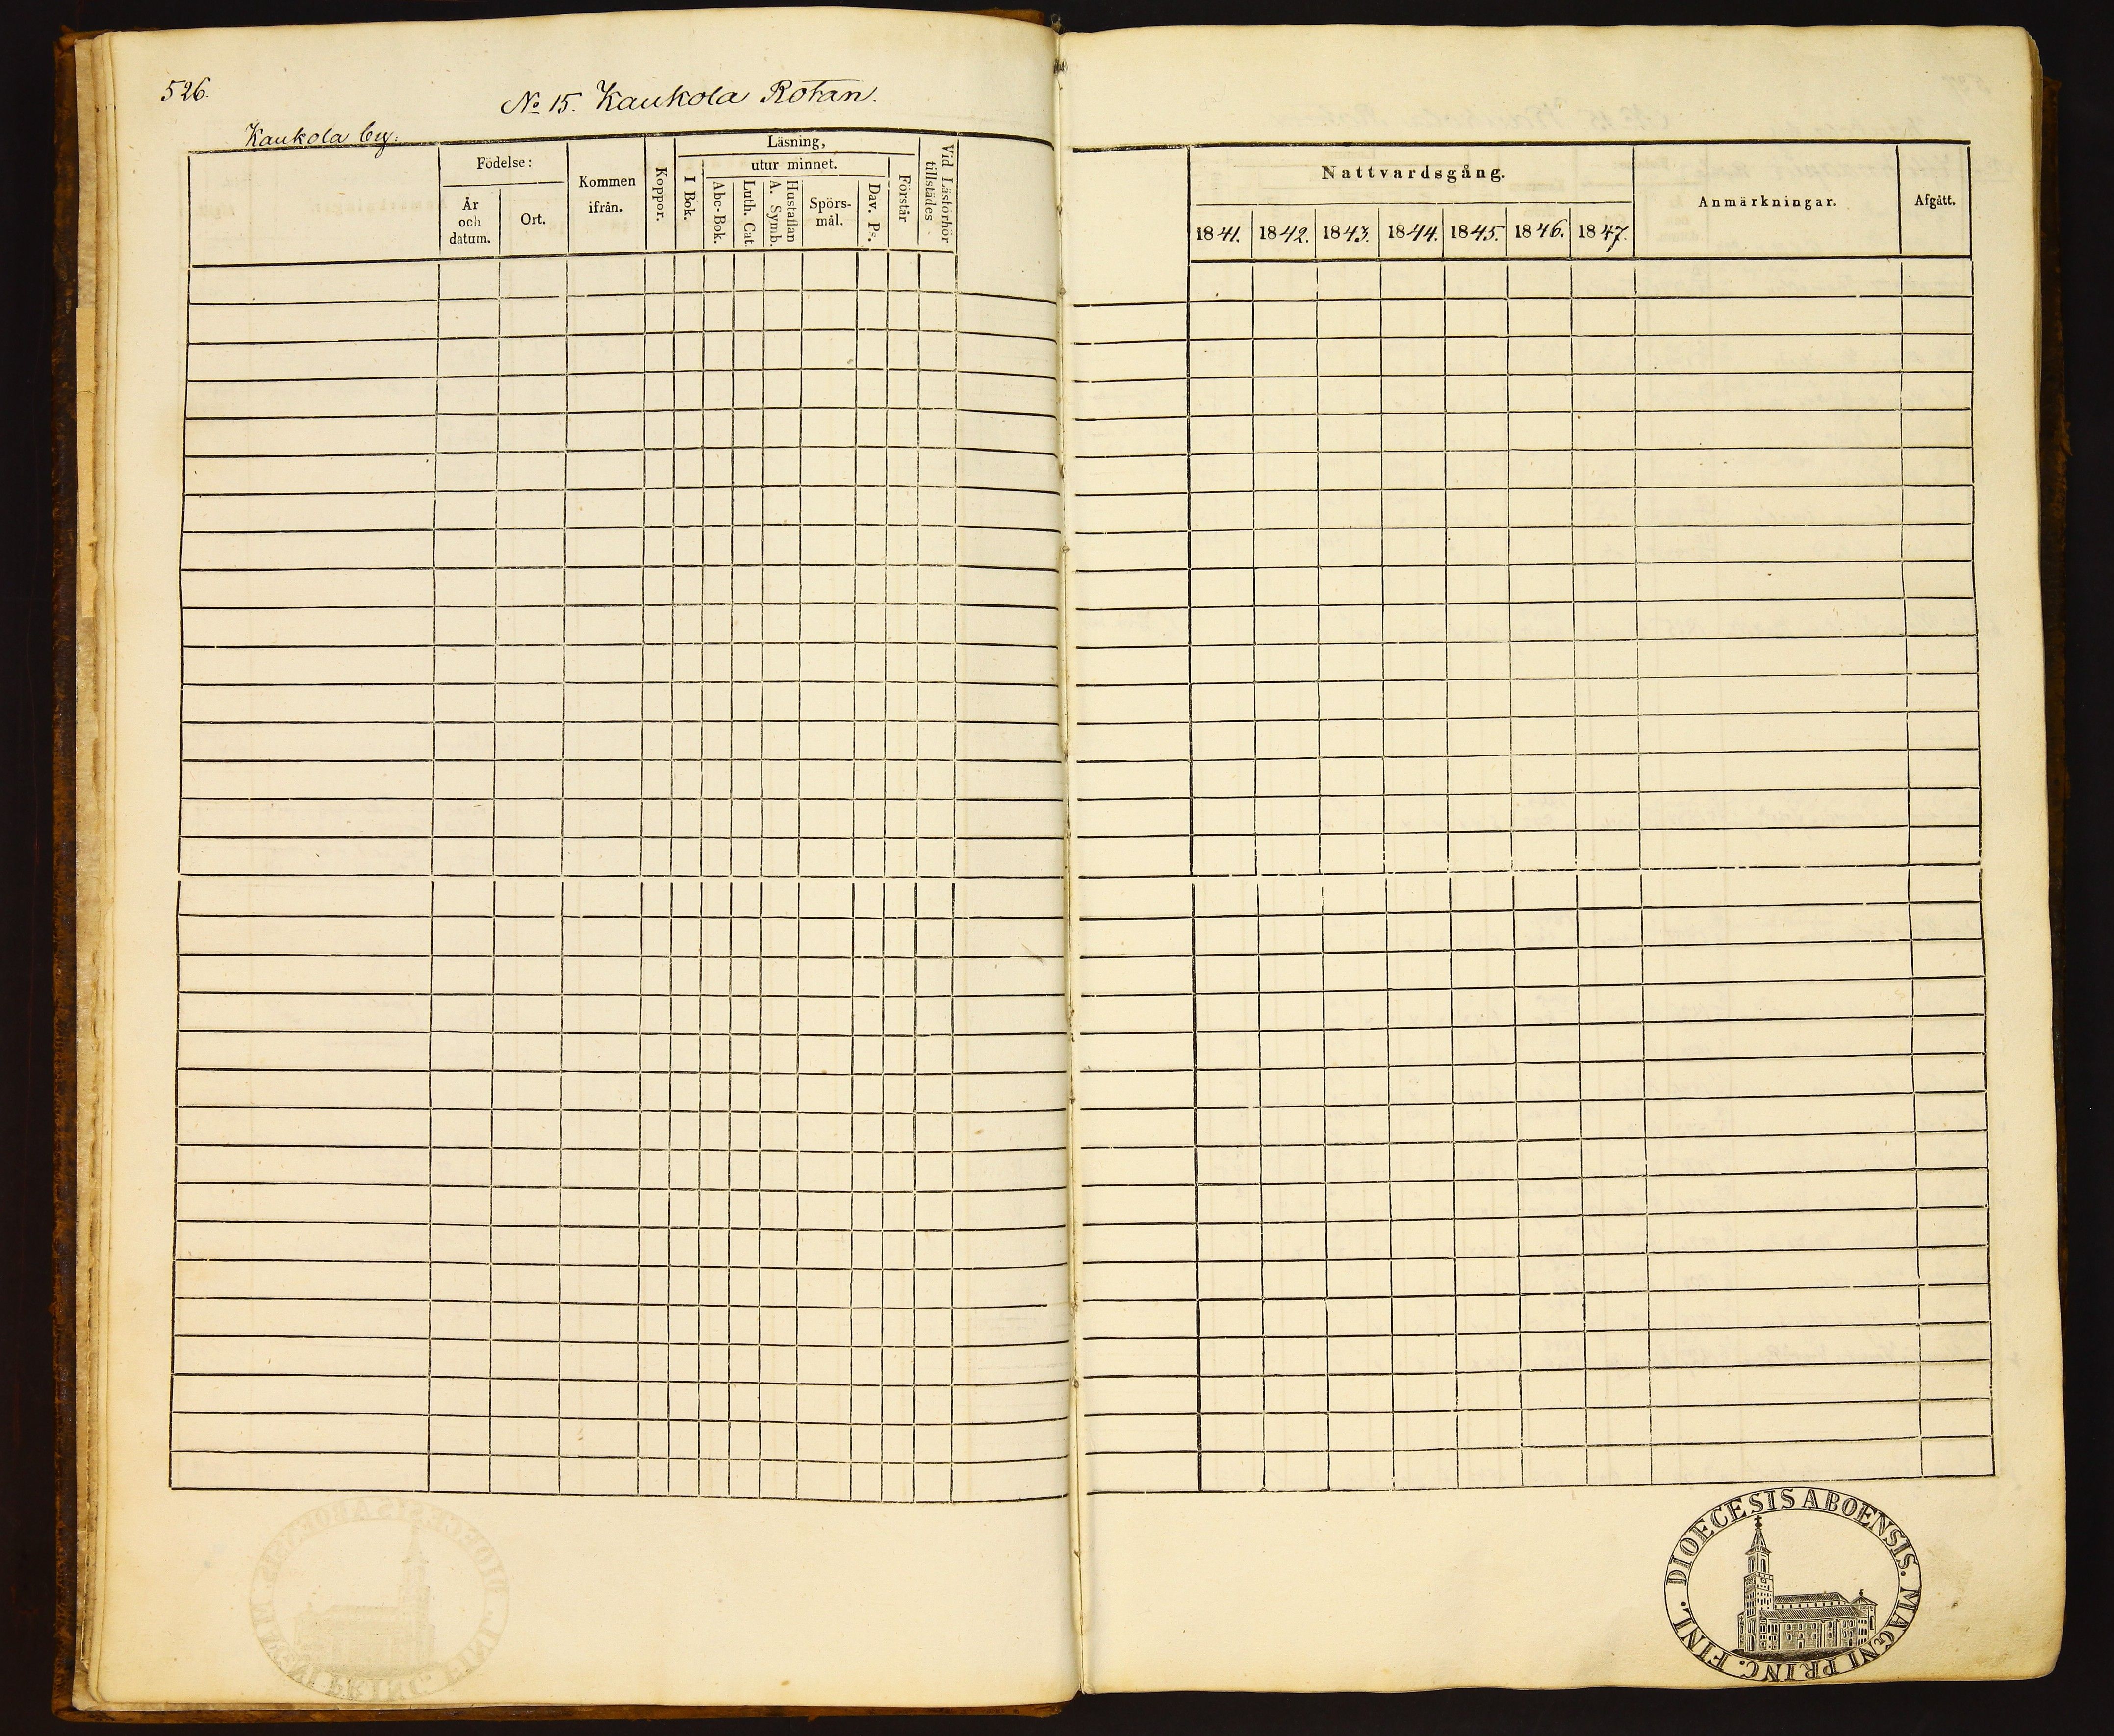 526.
No 15. Kaukola Rotan.
Kaukola by:
Födelse:
År
och
datum.
Ort.
Kommen
ifrån.
Koppor.
Läsning,
I Bok.
utur minnet.
Abc-Bok.
Luth. Cat.
Hustaflan
A. Symb.
Spörs-
mål.
Dav. Ps.
Förstår
Vid Läsförhör
tillstädes
Nattvardsgång.
1841. 1842. 1843. 1844. 1845. 1846. 1847.
Anmärkningar.
Afgått.
DIOECESIS ABOENSIS. MAGNI PRINC. FINL.